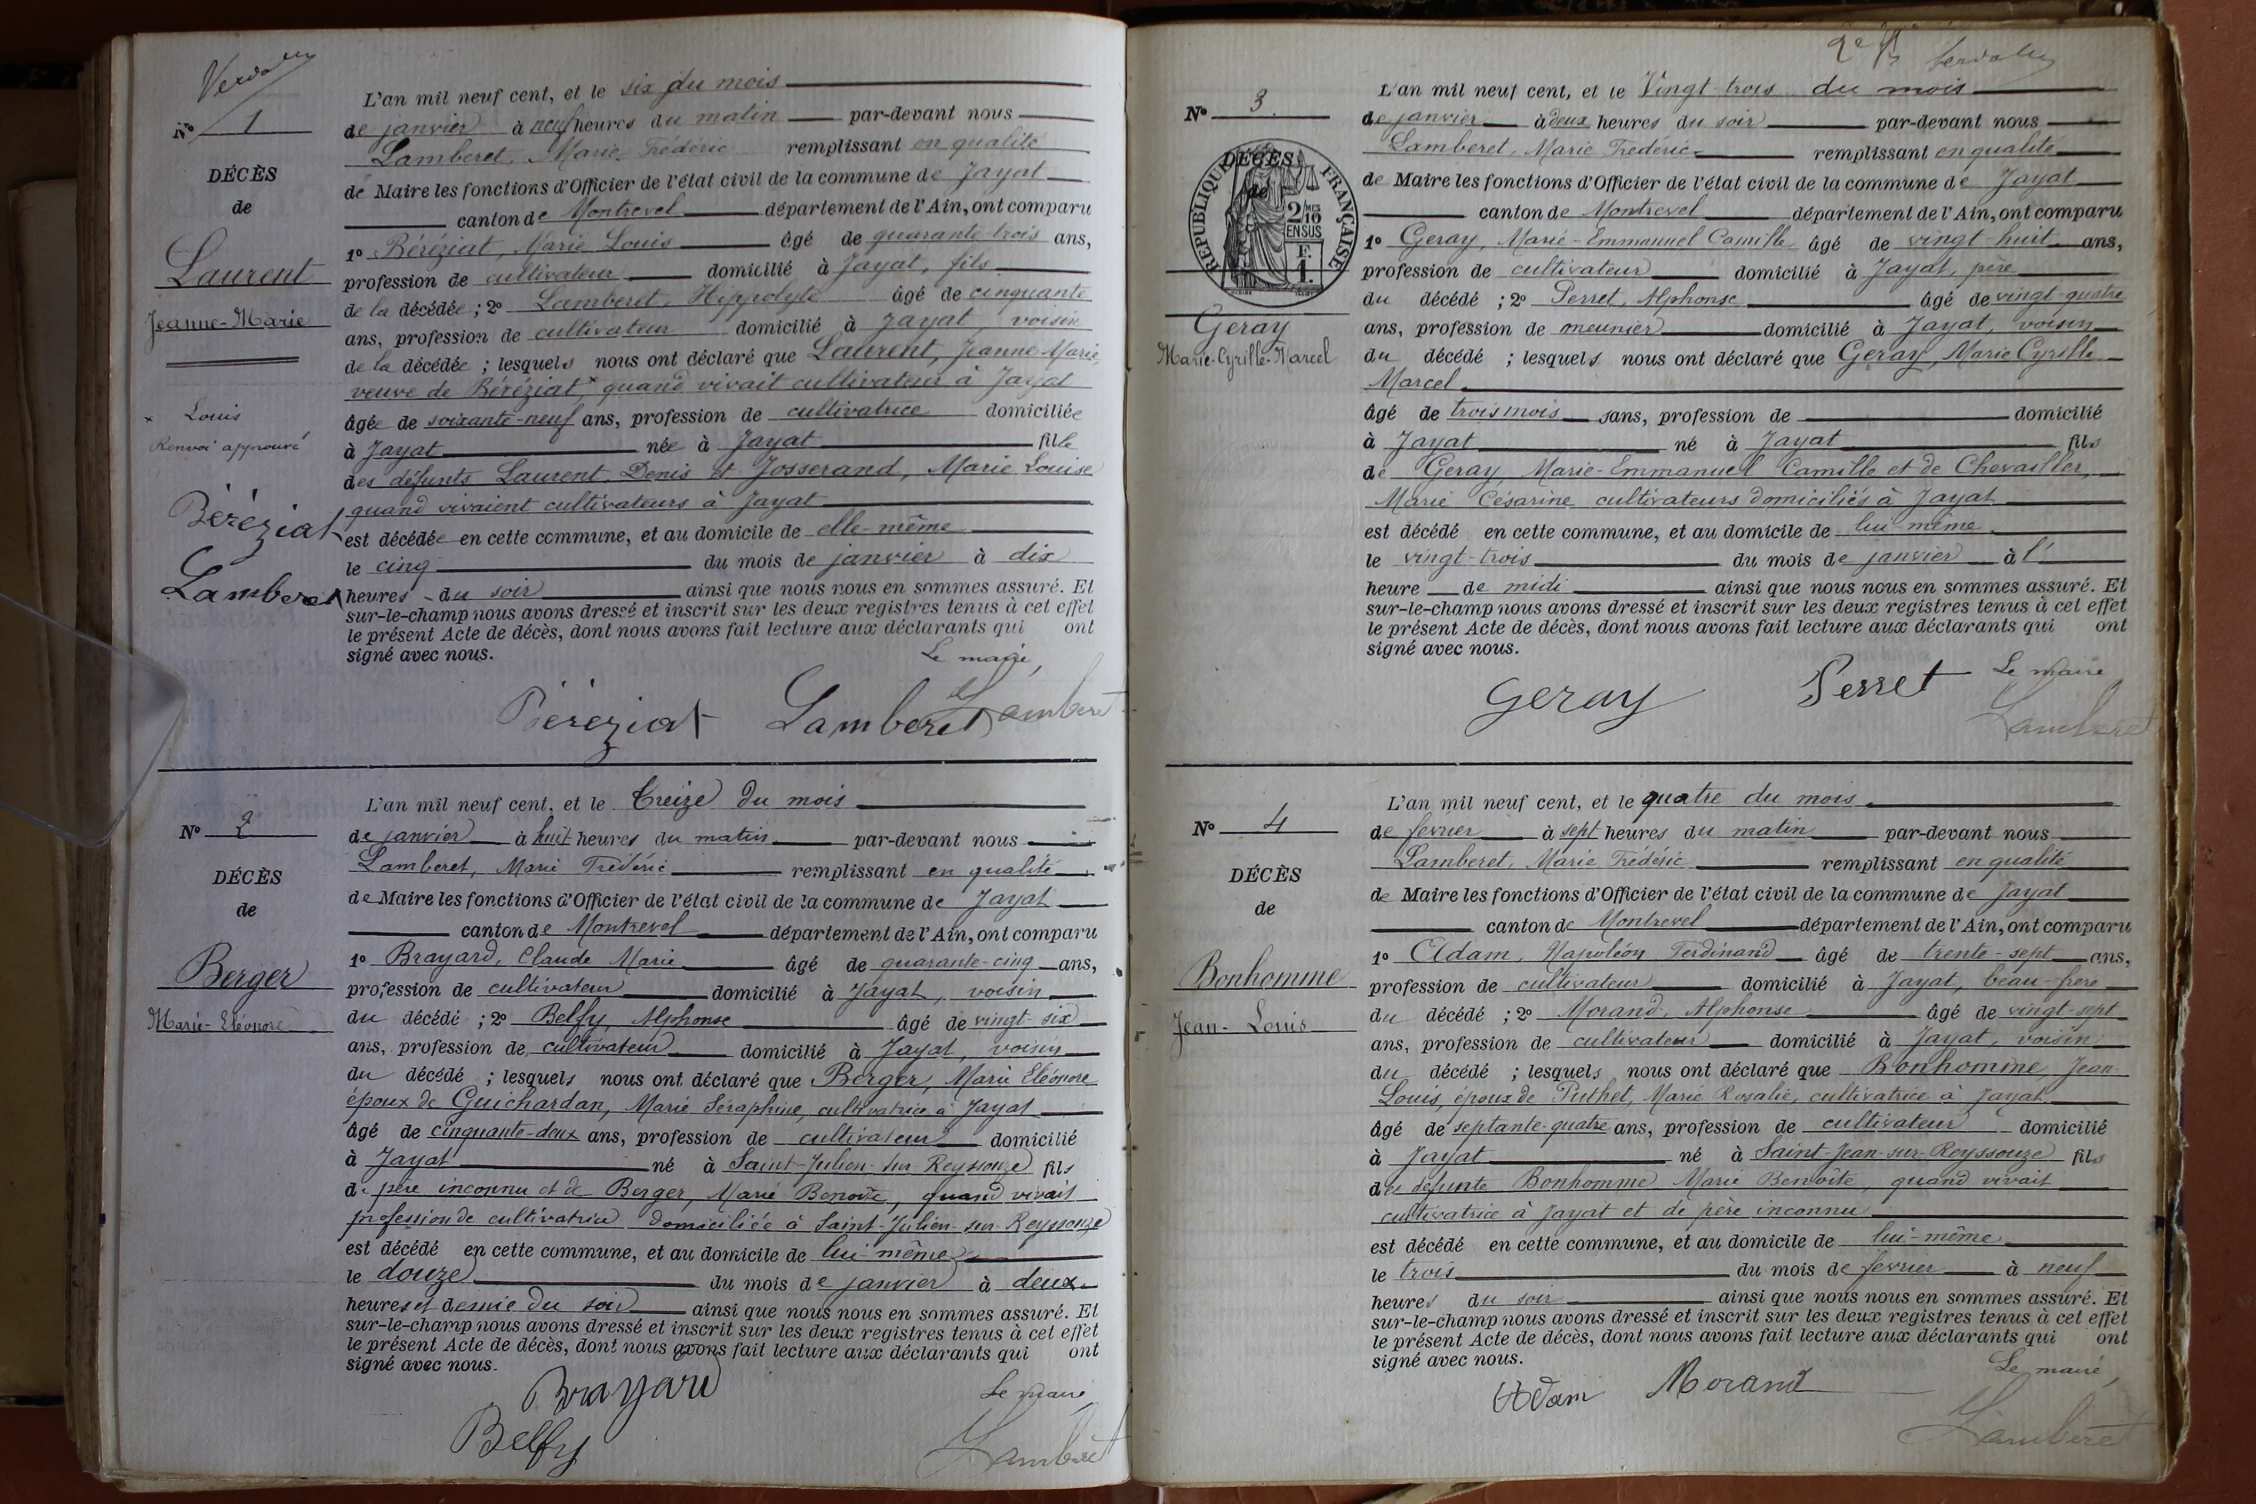 N° 1
DÉCÈS
de
Laurent
Jeanne-Marie
× Louis
Renvoi approuvé
Béréziat
Lamberet
L'an mil neuf cent, et le six du mois
de janvier à neuf heures du matin par-devant nous
Lamberet, Marie Frédéric remplissant en qualité
de Maire les fonctions d'Officier de l'état civil de la commune de Jayat
canton de Montrevel département de l'Ain, ont comparu
1° Béréziat, Marie Louis âgé de quarante-trois ans,
profession de cultivateur domicilié à Jayat, fils
de la décédée ; 2° Lamberet, Hippolyte âgé de cinquante
ans, profession de cultivateur domicilié à Jayat, voisin
de la décédée ; lesquels nous ont déclaré que Laurent, Jeanne-Marie,
veuve de Béréziat × quand vivait cultivateur à Jayat
âgée de soixante-neuf ans, profession de cultivatrice domiciliée
à Jayat née à Jayat fille
des défunts Laurent, Denis et Josserand, Marie Louise
quand vivaient cultivateurs à Jayat
est décédée en cette commune, et au domicile de elle-même
le cinq du mois de janvier à dix
heures du soir ainsi que nous nous en sommes assuré. Et
sur-le-champ nous avons dressé et inscrit sur les deux registres tenus à cet effet
le présent Acte de décès, dont nous avons fait lecture aux déclarants qui ont
signé avec nous.
Le maire,
Béréziat Lamberet Lamberet
N° 2
DÉCÈS
de
Berger
Marie-Eléonore
L'an mil neuf cent, et le treize du mois
de janvier à huit heures du matin par-devant nous
Lamberet, Marie Frédéric remplissant en qualité
de Maire les fonctions d'Officier de l'état civil de la commune de Jayat
canton de Montrevel département de l'Ain, ont comparu
1° Brayard, Claude Marie âgé de quarante-cinq ans,
profession de cultivateur domicilié à Jayat, voisin
du décédé ; 2° Belfy, Alphonse âgé de vingt-six
ans, profession de cultivateur domicilié à Jayat, voisin
du décédé ; lesquels nous ont déclaré que Berger, Marie Eléonore
époux de Guichardan, Marie Séraphine, cultivatrice à Jayat
âgé de cinquante-deux ans, profession de cultivateur domicilié
à Jayat né à Saint-Julien-sur-Reyssouze fils
de père inconnu et de Berger, Marie Benoîte, quand vivait
profession de cultivatrice domiciliée à Saint-Julien-sur-Reyssouze
est décédé en cette commune, et au domicile de lui-même
le douze du mois de janvier à deux
heures et demie du soir ainsi que nous nous en sommes assuré. Et
sur-le-champ nous avons dressé et inscrit sur les deux registres tenus à cet effet
le présent Acte de décès, dont nous avons fait lecture aux déclarants qui ont
signé avec nous.
Brayard
Le maire,
Belfy
Lamberet
N° 3
DÉCÈS
de
RÉPUBLIQUE FRANÇAISE
2/10 EN SUS
F. 1.
Geray
Marie-Cyrille-Marcel
L'an mil neuf cent, et le Vingt-trois du mois
de janvier à deux heures du soir par-devant nous
Lamberet, Marie Frédéric remplissant en qualité
de Maire les fonctions d'Officier de l'état civil de la commune de Jayat
canton de Montrevel département de l'Ain, ont comparu
1° Geray, Marie-Emmanuel Camille âgé de vingt-huit ans,
profession de cultivateur domicilié à Jayat, père
du décédé ; 2° Perret, Alphonse âgé de vingt-quatre
ans, profession de meunier domicilié à Jayat, voisin
du décédé ; lesquels nous ont déclaré que Geray, Marie Cyrille
Marcel
âgé de trois mois ans, profession de domicilié
à Jayat né à Jayat fils
de Geray, Marie-Emmanuel Camille et de Chevailler,
Marie Césarine cultivateurs domiciliés à Jayat
est décédé en cette commune, et au domicile de lui-même
le vingt-trois du mois de janvier à l'
heure de midi ainsi que nous nous en sommes assuré. Et
sur-le-champ nous avons dressé et inscrit sur les deux registres tenus à cet effet
le présent Acte de décès, dont nous avons fait lecture aux déclarants qui ont
signé avec nous.
Le maire
Geray Perret Lamberet
N° 4
DÉCÈS
de
Bonhomme
Jean-Louis
L'an mil neuf cent, et le quatre du mois
de février à sept heures du matin par-devant nous
Lamberet, Marie Frédéric remplissant en qualité
de Maire les fonctions d'Officier de l'état civil de la commune de Jayat
canton de Montrevel département de l'Ain, ont comparu
1° Adam, Napoléon Ferdinand âgé de trente-sept ans,
profession de cultivateur domicilié à Jayat, beau-frère
du décédé ; 2° Morand, Alphonse âgé de vingt-sept
ans, profession de cultivateur domicilié à Jayat, voisin
du décédé ; lesquels nous ont déclaré que Bonhomme, Jean-
Louis, époux de Puthet, Marie Rosalie, cultivatrice à Jayat
âgé de septante-quatre ans, profession de cultivateur domicilié
à Jayat né à Saint-Jean-sur-Reyssouze fils
de défunte Bonhomme Marie Benoîte, quand vivait
cultivatrice à Jayat et de père inconnu
est décédé en cette commune, et au domicile de lui-même
le trois du mois de février à neuf
heures du soir ainsi que nous nous en sommes assuré. Et
sur-le-champ nous avons dressé et inscrit sur les deux registres tenus à cet effet
le présent Acte de décès, dont nous avons fait lecture aux déclarants qui ont
signé avec nous.
Le maire,
Adam Morand
Lamberet